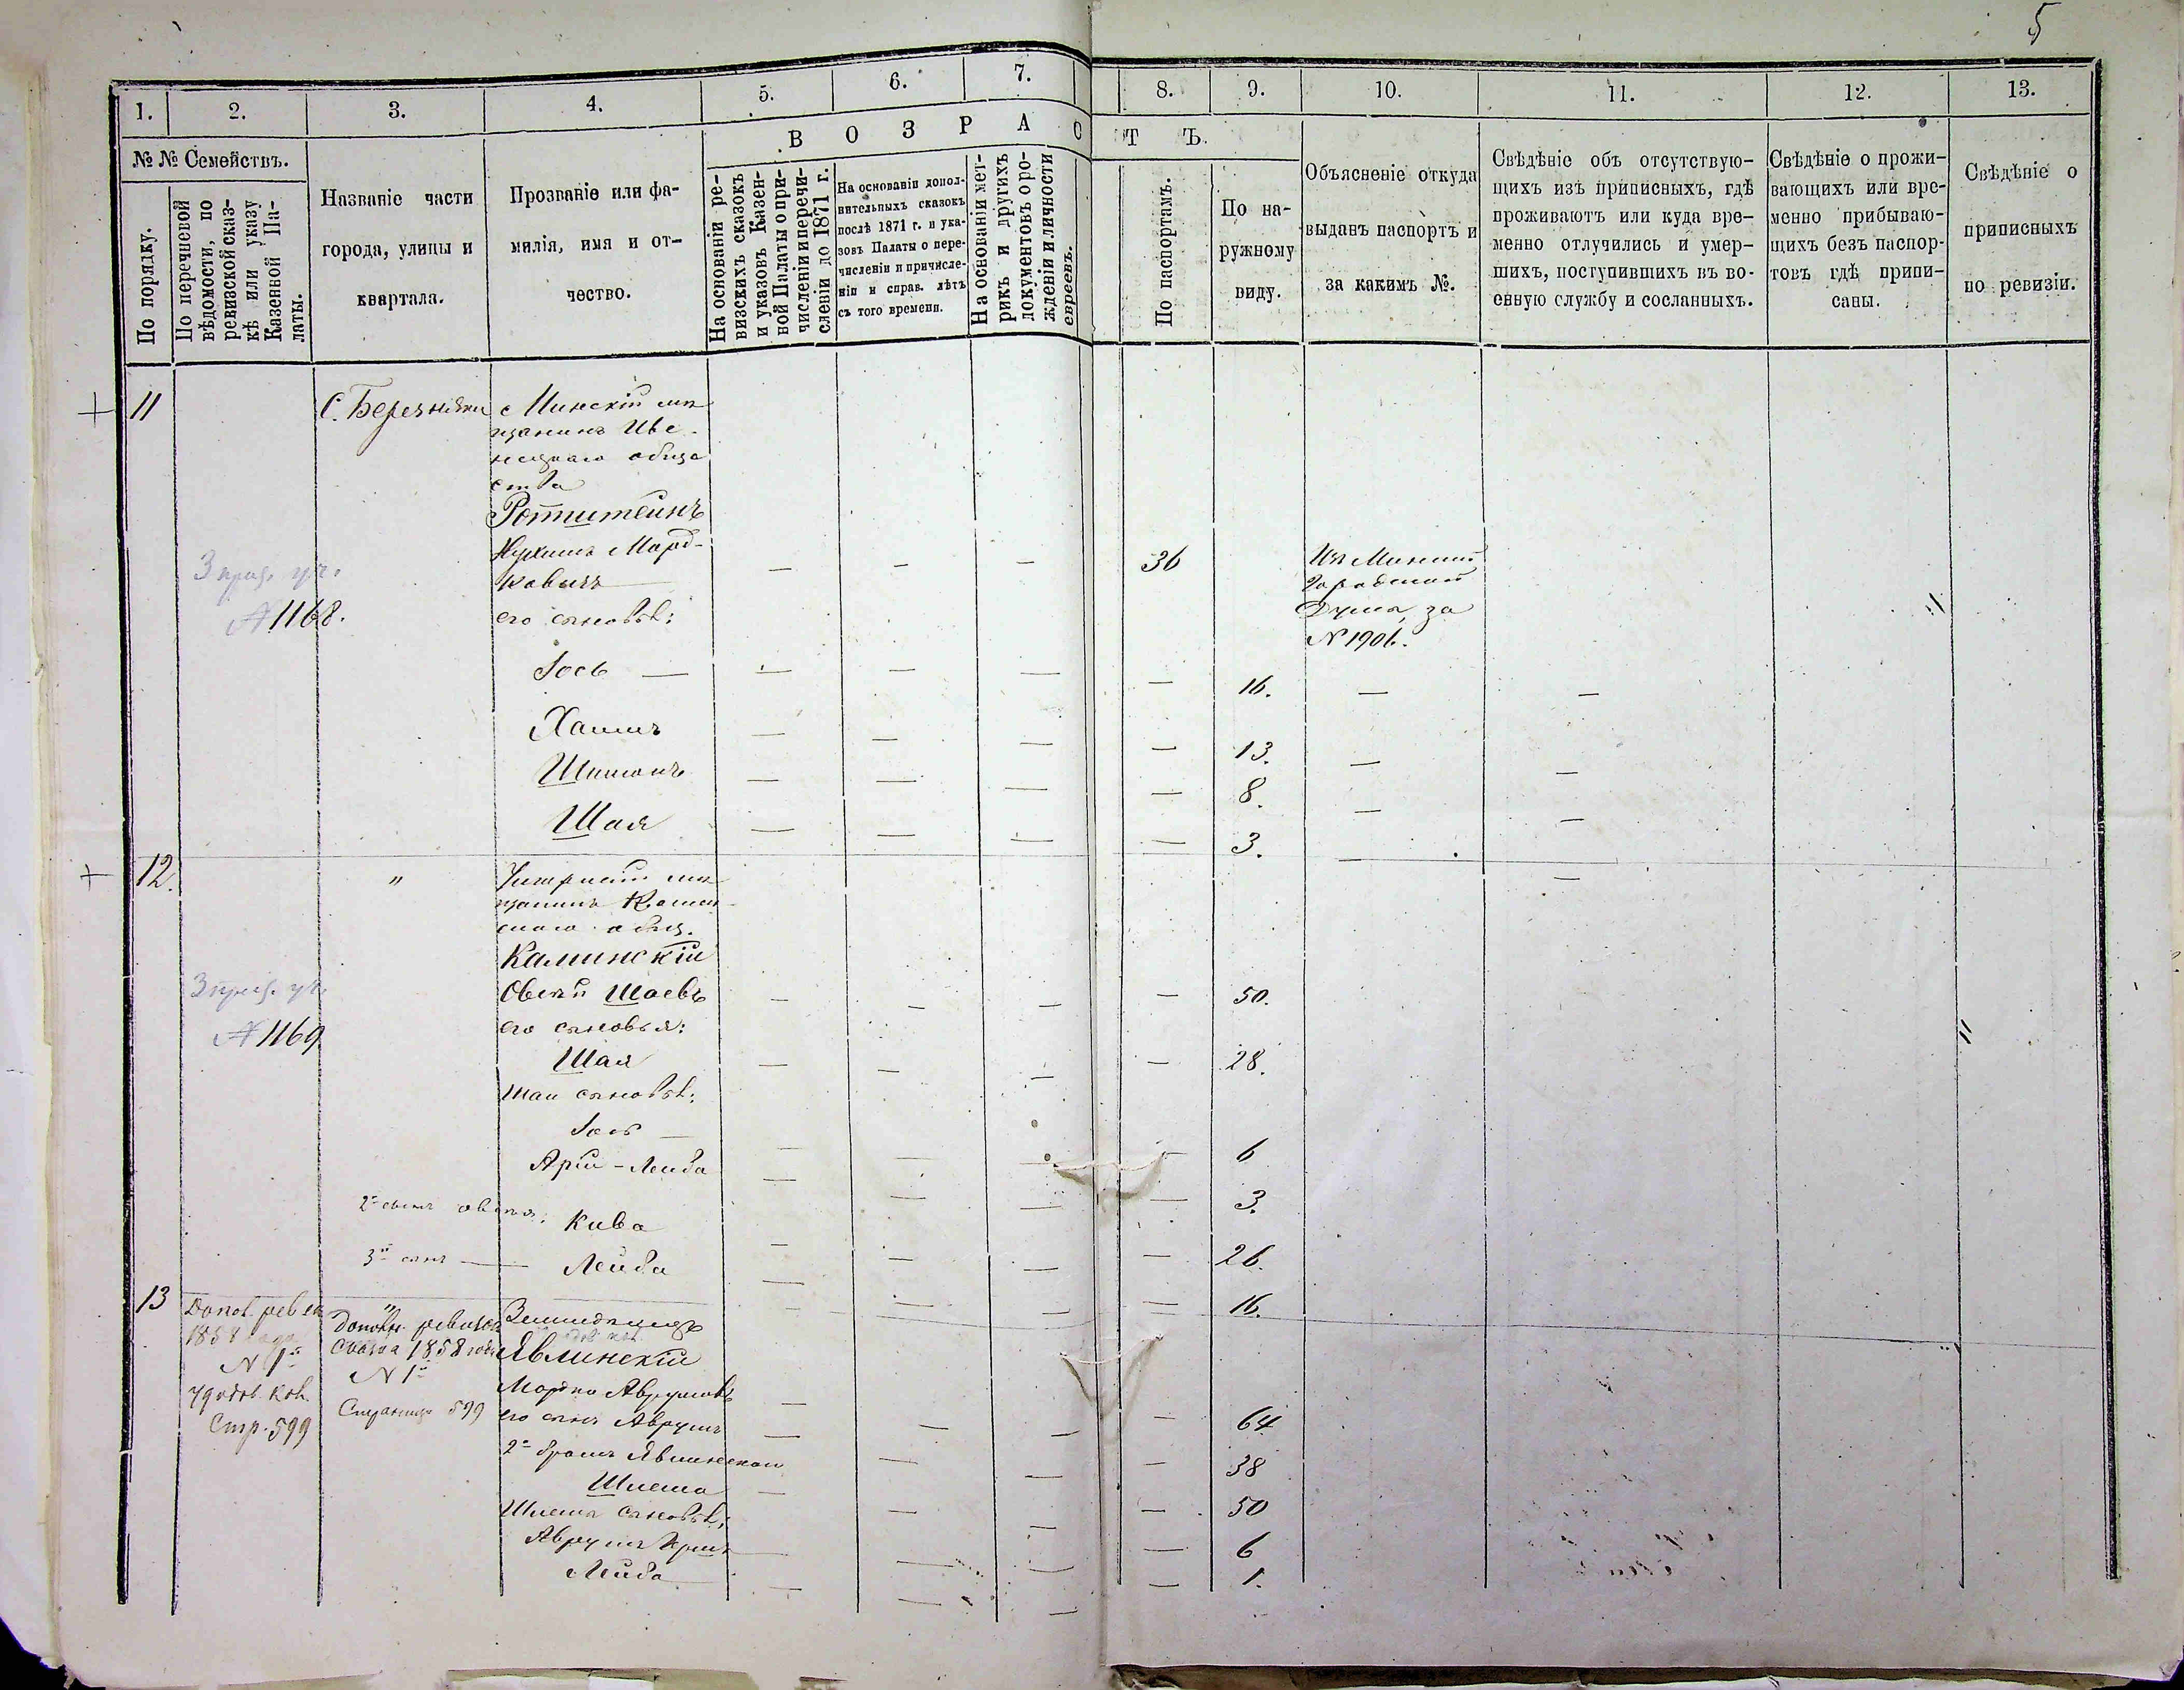 5
1. 2. 3. 4. 5. 6. 7. 8. 9. 10. 11. 12. 13.
№ № Семействъ.
По порядку.
По перечневой
вѣдомости, по
ревизской сказ-
кѣ или указу
Казенной Па-
латы.
Названіе части
города, улицы и
квартала.
Прозваніе или фа-
милія, имя и от-
чество.
В О З Р А С Т Ъ.
На основаніи ре-
визскихъ сказокъ
и указовъ Казен-
ной Палаты о при-
численіи и перечи-
сленіи до 1871 г.
На основаніи допол-
нительныхъ сказокъ
послѣ 1871 г. и ука-
зовъ Палаты о пере-
численіи и причисле-
ніи и справ. лѣтъ
съ того времени.
На основаніи мет-
рикъ и другихъ
документовъ о ро-
жденіи и личности
евреевъ.
По паспортамъ.
По на-
ружному
виду.
Объясненіе откуда
выданъ паспортъ и
за какимъ №.
Свѣдѣніе объ отсутствую-
щихъ изъ приписныхъ, гдѣ
проживаютъ или куда вре-
менно отлучились и умер-
шихъ, поступившихъ въ во-
енную службу и сосланныхъ.
Свѣдѣніе о прожи-
вающихъ или вре-
менно прибываю-
щихъ безъ паспор-
товъ гдѣ припи-
саны.
Свѣдѣніе о
приписныхъ
по ревизіи.
11 С. Березняки Минскій мѣ
щанинъ Иве-
нецкаго обще
ства
Ротштейнъ
Морд-
ковичъ — — — 36 Изъ Минской
Городской
Думы, за
N 1901.
3 уч.
N 1168.
его сыновья:
Іось — — — — — 16. — —
Хаимъ — — — — 13. — —
Шимонъ — — — — 8. — —
Шая — — — — 3. — —
12. " мѣ
щанинъ
скаго общ.
Каминскій
3 уч.
N 1169
Овсѣй Шаевъ — — — — 50.
его сыновья:
Шая — — — — 28.
Шаи сыновья:
Іось — — — — — 6
Арій-Лейба — — — — 3.
2й сынъ Овсѣя: Кива — — — — 26.
3й сынъ — Лейба — — — — 16.
13 "
Допол. рев. ск.
1858 года
N 1й
Стр. 599
Дополн. ревизск.
сказка 1858 года
N 1й
Страница 599
Явлинскій
Мордко Аврумовъ — — — — 64
его сынъ Аврумъ — — — — 38
2й братъ Явлинскаго
Шлема — — — — 50
Шлемы сыновья:
Аврумъ — — — — 6
Лейба — — — — 1.